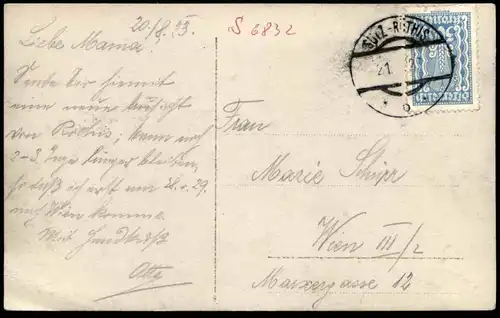 20./8. 23.
S 6832
SULZ-RÖTHIS
21
Liebe Mama!
Sende Dir hiemit
eine neue Ansicht
von Röthis; kann noch
2-3 Tage länger bleiben,
so daß ich erst am 28. o. 29.
nach Wien komme.
Mit Handkuß
Otto
Frau
Marie
Wien III/2
Marxergasse 12